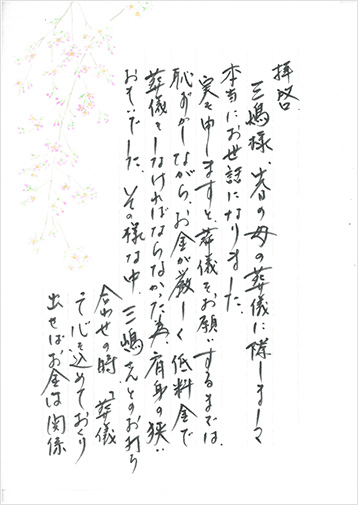 拝啓
三嶋様、昨春の母の葬儀に際しまして
本当にお世話になりました。
実を申しますと、葬儀をお願いするまでは、
恥ずかしながら、お金が厳しく低料金で
葬儀をしなければならなかった為、肩身の狭い
おもいでした。その様な中、三嶋さんとのお打ち
合わせの時、「葬儀
て心を込めておくり
出せば、お金は関係